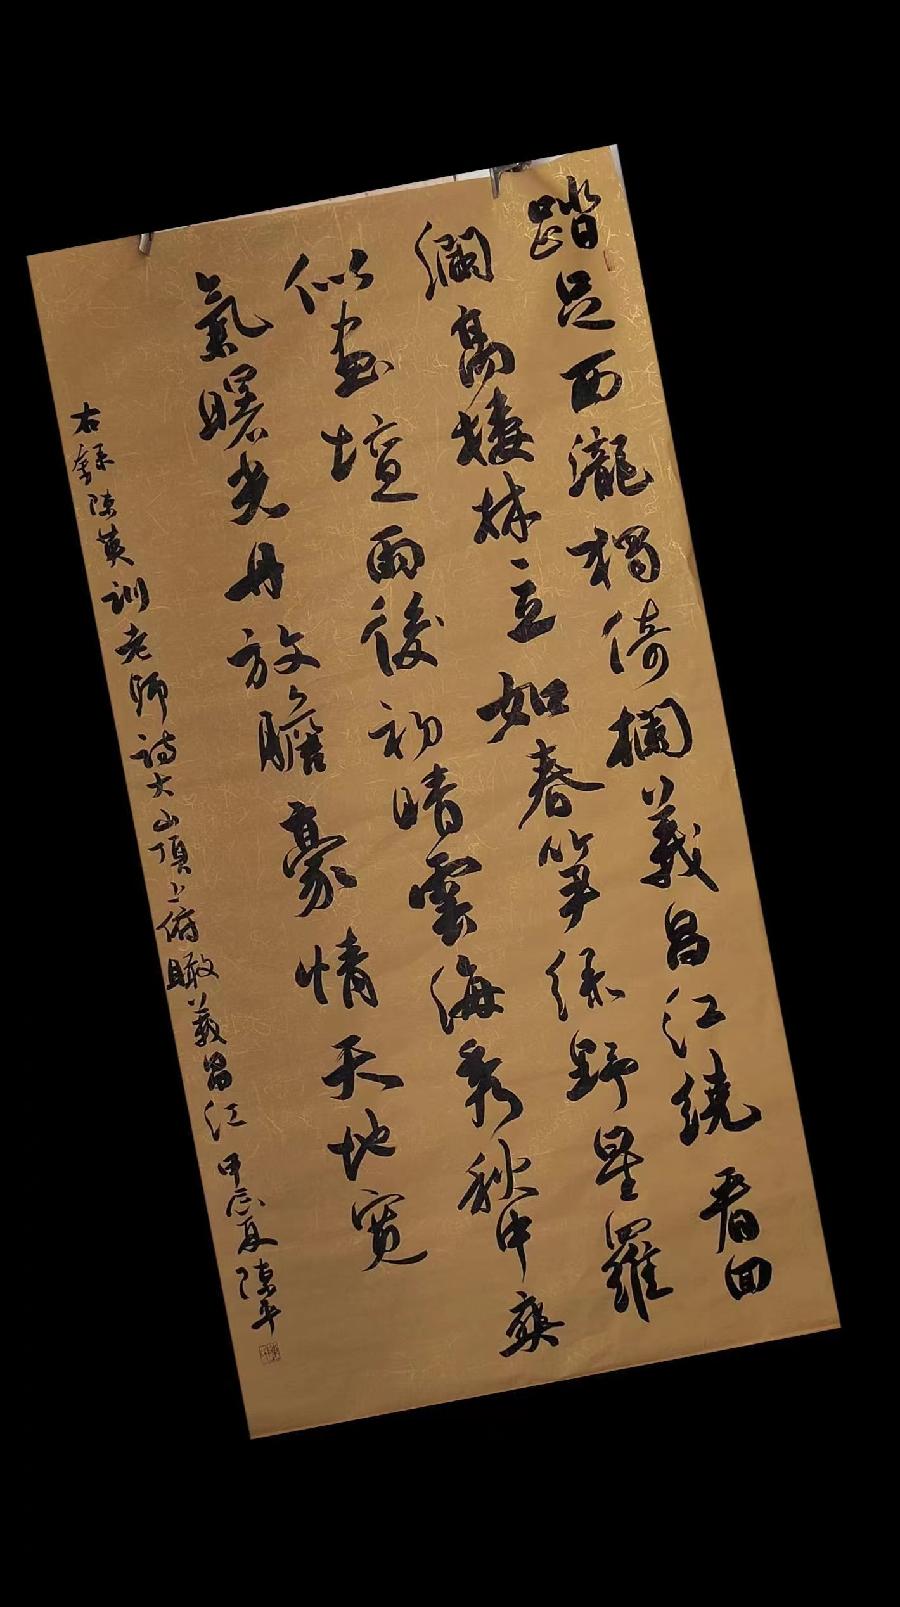 踏足西瀧獨倚欄義昌江繞看回
瀾高樓林立如春笋绿野星羅
似畫壇雨後初晴雲海秀秋中爽
氣曙光丹放膽豪情天地宽
右錄陳英训老师詩大山頂上俯瞰義昌江 甲辰夏陳平